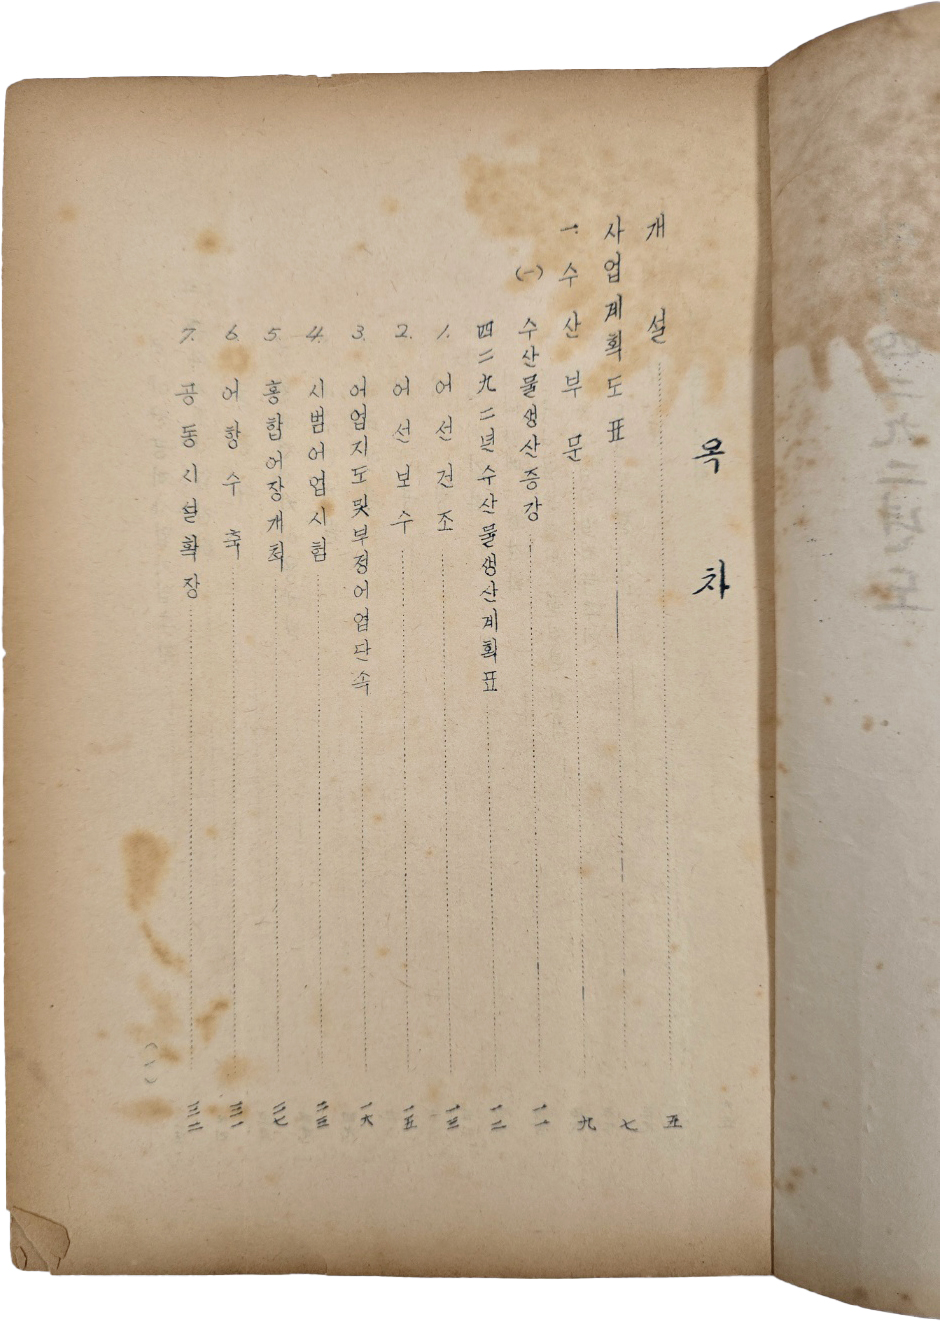 목차
개설 五
사업계획도표 七
一. 수산부문 九
(一) 수산물생산증강 一一
四二九二년수산물생산계획표 一二
1. 어선건조 一三
2. 어선보수 一五
3. 어업지도및부정어업단속 一六
4. 시범어업시험 二三
5. 홍합어장개척 二七
6. 어항수축 三一
7. 공동시설확장 三二
(一)